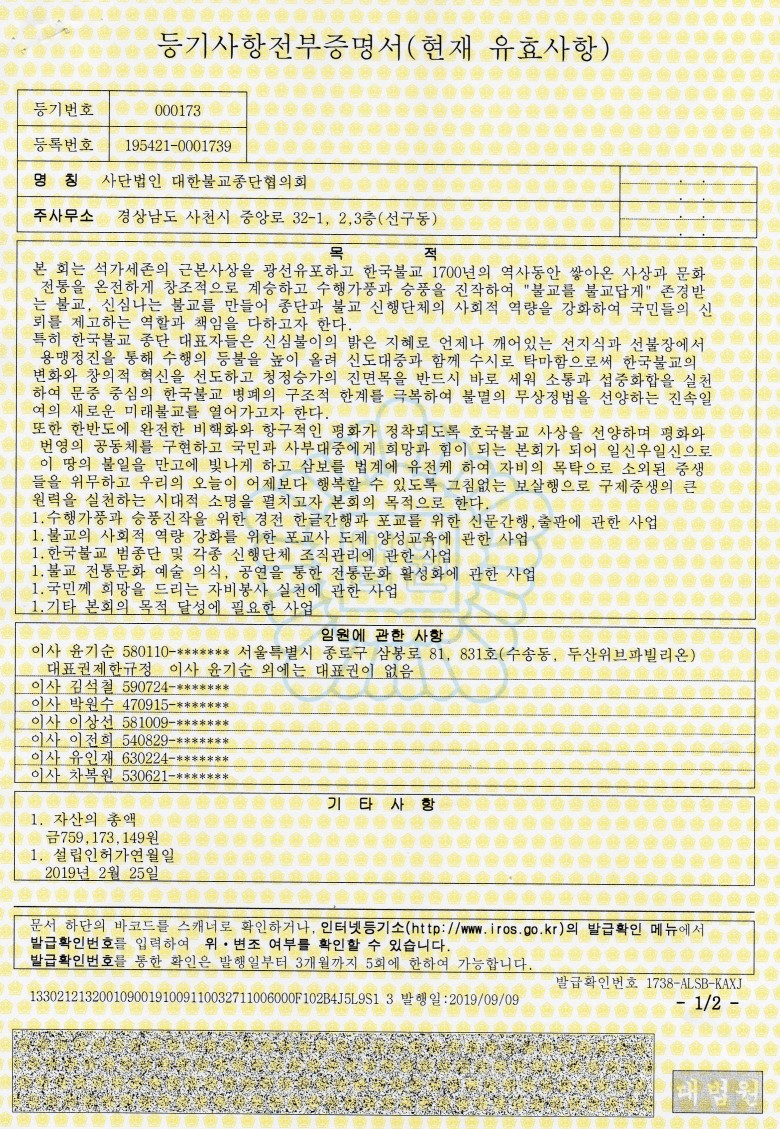 등기사항전부증명서(현재 유효사항)
등기번호 000173
등록번호 195421-0001739
명 칭 사단법인 대한불교종단협의회
주사무소 경상남도 사천시 중앙로 32-1, 2,3층(선구동)
목 적
본 회는 석가세존의 근본사상을 광선유포하고 한국불교 1700년의 역사동안 쌓아온 사상과 문화
전통을 온전하게 창조적으로 계승하고 수행가풍과 승풍을 진작하여 "불교를 불교답게" 존경받
는 불교, 신심나는 불교를 만들어 종단과 불교 신행단체의 사회적 역량을 강화하여 국민들의 신
뢰를 제고하는 역할과 책임을 다하고자 한다.
특히 한국불교 종단 대표자들은 신심불이의 밝은 지혜로 언제나 깨어있는 선지식과 선불장에서
용맹정진을 통해 수행의 등불을 높이 올려 신도대중과 함께 수시로 탁마함으로써 한국불교의
변화와 창의적 혁신을 선도하고 청정승가의 진면목을 반드시 바로 세워 소통과 섭중화합을 실천
하여 문중 중심의 한국불교 병폐의 구조적 한계를 극복하여 불멸의 무상정법을 선양하는 진속일
여의 새로운 미래불교를 열어가고자 한다.
또한 한반도에 완전한 비핵화와 항구적인 평화가 정착되도록 호국불교 사상을 선양하며 평화와
번영의 공동체를 구현하고 국민과 사부대중에게 희망과 힘이 되는 본회가 되어 일신우일신으로
이 땅의 불일을 만고에 빛나게 하고 삼보를 법계에 유전케 하여 자비의 목탁으로 소외된 중생
들을 위무하고 우리의 오늘이 어제보다 행복할 수 있도록 그침없는 보살행으로 구제중생의 큰
원력을 실천하는 시대적 소명을 펼치고자 본회의 목적으로 한다.
1.수행가풍과 승풍진작을 위한 경전 한글간행과 포교를 위한 신문간행,출판에 관한 사업
1.불교의 사회적 역량 강화를 위한 포교사 도제 양성교육에 관한 사업
1.한국불교 범종단 및 각종 신행단체 조직관리에 관한 사업
1.불교 전통문화 예술 의식, 공연을 통한 전통문화 활성화에 관한 사업
1.국민께 희망을 드리는 자비봉사 실천에 관한 사업
1.기타 본회의 목적 달성에 필요한 사업
임원에 관한 사항
이사 윤기순 580110-******* 서울특별시 종로구 삼봉로 81, 831호(수송동, 두산위브파빌리온)
대표권제한규정 이사 윤기순 외에는 대표권이 없음
이사 김석철 590724-*******
이사 박원수 470915-*******
이사 이상선 581009-*******
이사 이전희 540829-*******
이사 유인재 630224-*******
이사 차복원 530621-*******
기 타 사 항
1. 자산의 총액
금759,173,149원
1. 설립인허가연월일
2019년 2월 25일
문서 하단의 바코드를 스캐너로 확인하거나, 인터넷등기소(http://www.iros.go.kr)의 발급확인 메뉴에서
발급확인번호를 입력하여 위·변조 여부를 확인할 수 있습니다.
발급확인번호를 통한 확인은 발행일부터 3개월까지 5회에 한하여 가능합니다.
발급확인번호 1738-ALSB-KAXJ
13302121320010900191009110032711006000F102B4J5L9S1 3 발행일:2019/09/09
- 1/2 -
대법원